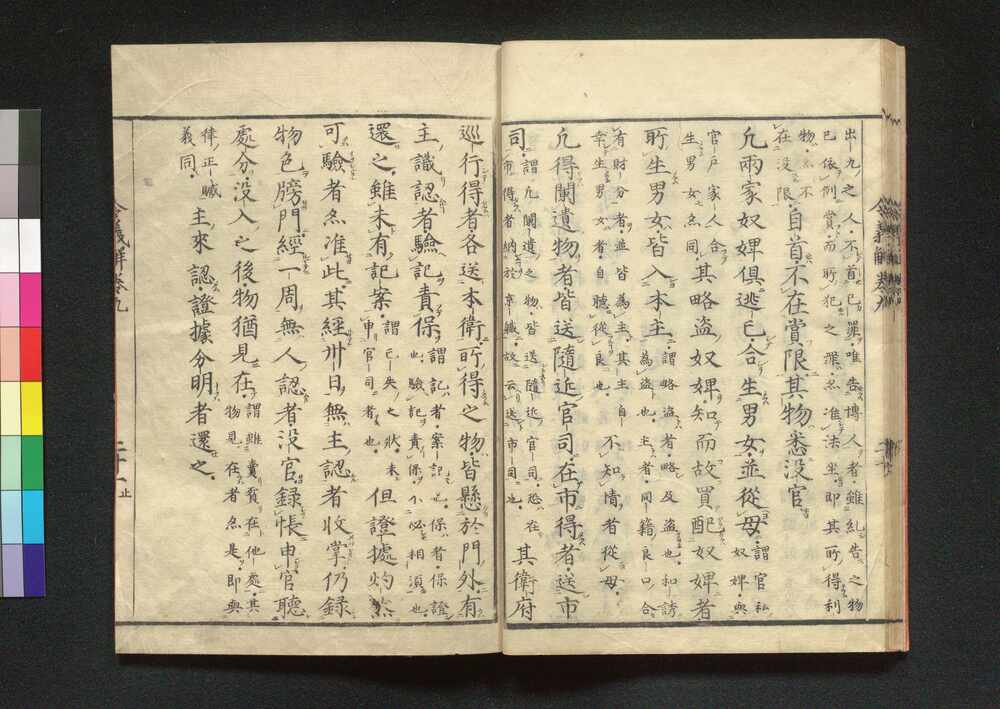 出九之人不首已罪唯告博人者雖糺告之物
已依例賞而所犯之罪尓准法坐即其所得利
物尓不
在没限自首不在賞限其物悉没官
凡兩家奴婢倶逃亡合生男女並從母謂官私
奴婢與
官戸家人合
生男女尓同其略盗奴婢知而故買配奴婢者
所生男女皆入本主謂略盗者略及盗也和誘
為盗也主者同籍良口合
有財分者並皆為主其主自
幸生男女者自聴從良也不知情者從母
凡得闌遺物者皆送隨近官司在市得者送市
司謂凡闌遺之物皆送隨近官司恐在
市得者納於京軄故云送市司也其衛府
巡行得者各送本衛所得之物皆懸於門外有
主識認者驗記責保謂記者案記也保者保證
也驗記責保不必相須也
還之雖未有記案謂已失之状未
申官司者也但證據灼然
可驗者尓准此其經卅日無主認者收掌仍録
物色牓門經一周無人認者没官録帳申官聽
處分没入之後物猶見在謂雖賣貿在他處其
物見在者尓是即與
律正贓
義同主來認證據分明者還之
令義解巻九
二十一止